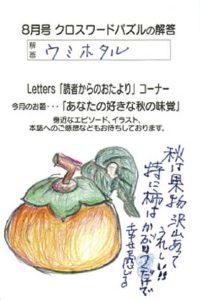 8月号 クロスワードパズルの解答
解答 ウミホタル
Letters「読者からのおたより」コーナー
今月のお題・・・「あなたの好きな秋の味覚」
身近なエピソード、イラスト、
本誌へのご感想などもお待ちしております。
秋は果物 沢山あって
うれしい!!
特に柿は
かぶりつくだけで
幸せを感じる